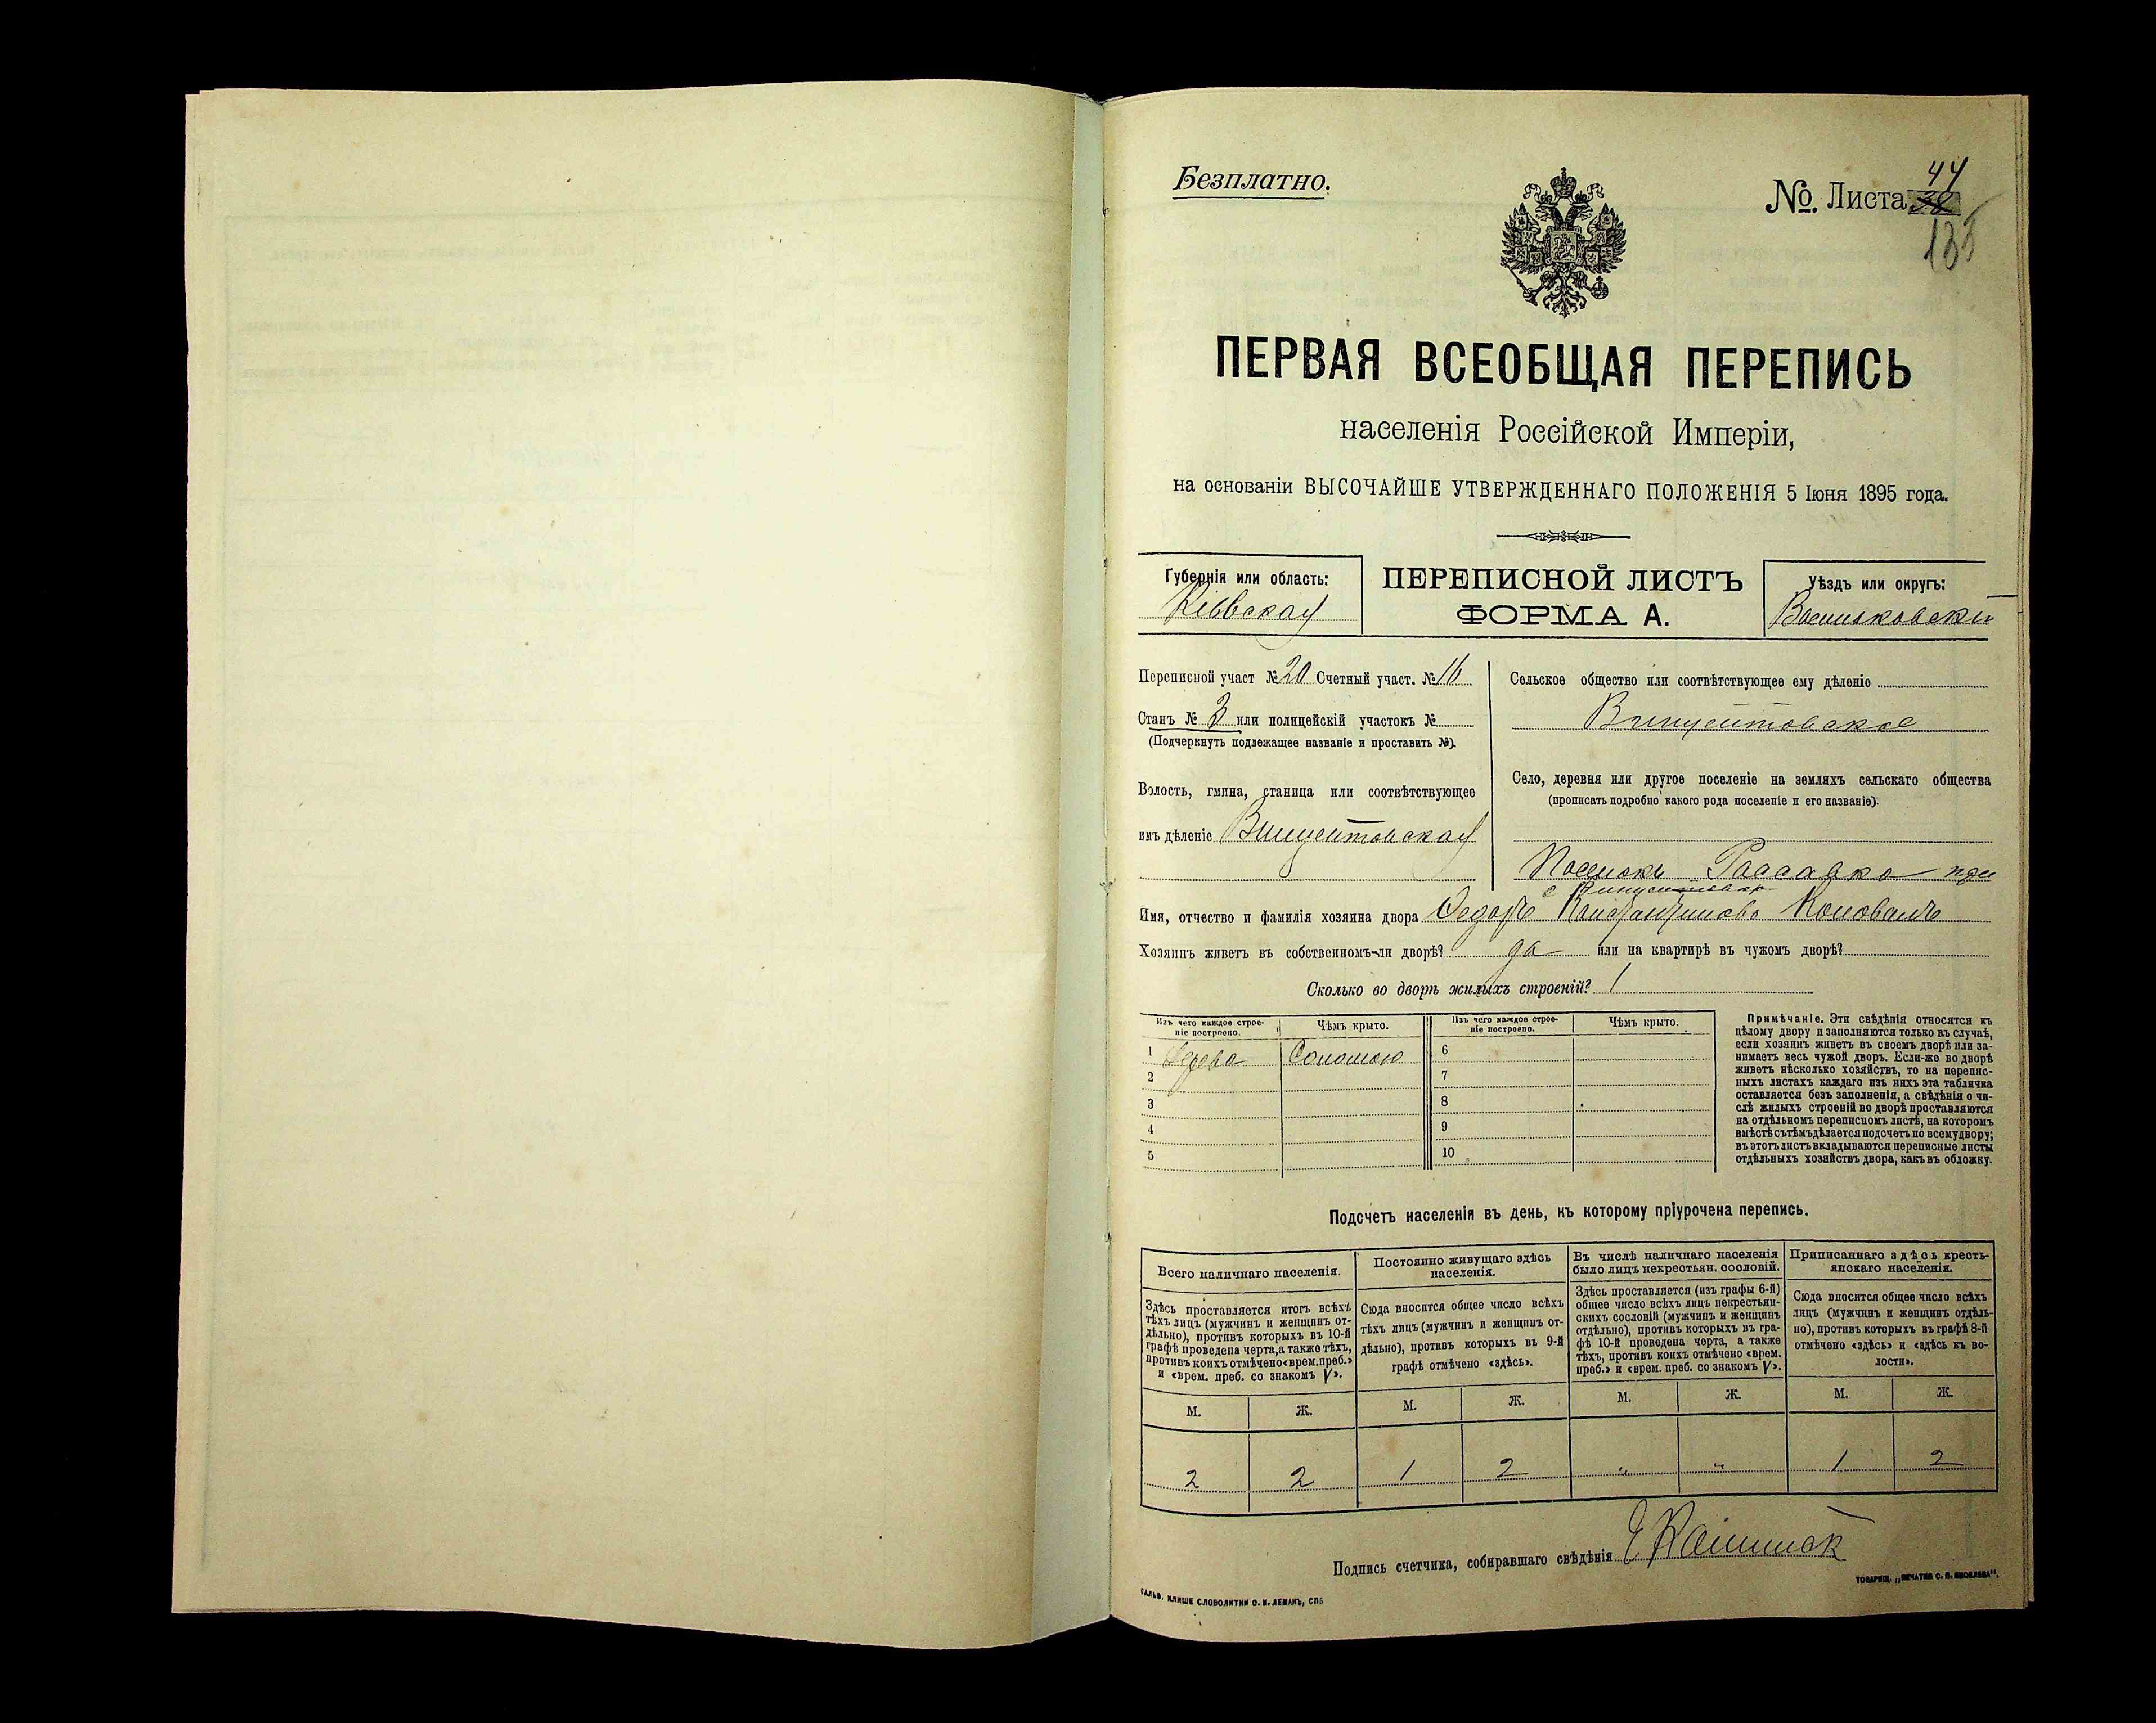 Безплатно.
44
№. Листа 38
135
ПЕРВАЯ ВСЕОБЩАЯ ПЕРЕПИСЬ
населенія Россійской Имперіи,
на основаніи ВЫСОЧАЙШЕ УТВЕРЖДЕННАГО ПОЛОЖЕНІЯ 5 Іюня 1895 года.
Губернія или область:
Кіевская
ПЕРЕПИСНОЙ ЛИСТЪ
ФОРМА А.
Уѣздъ или округъ:
Васильковскій
Переписной участ №20 Счетный участ. №16
Станъ № 3 или полицейскій участокъ №
(Подчеркнуть подлежащее названіе и проставить №).
Волость, гмина, станица или соотвѣтствующее
имъ дѣленіе Винцентовская
Сельское общество или соотвѣтствующее ему дѣленіе
Винцентовское
Село, деревня или другое поселеніе на земляхъ сельскаго общества
(прописать подробно какого рода поселеніе и его названіе).
Поселокъ Россавка при
с Винцентовка
Имя, отчество и фамилія хозяина двора Федоръ Константиновъ Коновалъ
Хозяинъ живетъ въ собственномъ-ли дворѣ? да или на квартирѣ въ чужомъ дворѣ?
Сколько во дворѣ жилыхъ строеній? 1
Изъ чего каждое строе-
ніе построено.
Чѣмъ крыто.
Изъ чего каждое строе-
ніе построено.
Чѣмъ крыто.
1 Дерева Соломою 6
2 7
3 8
4 9
5 10
Примѣчаніе. Эти свѣдѣнія относятся къ
цѣлому двору и заполняются только въ случаѣ,
если хозяинъ живетъ въ своемъ дворѣ или за-
нимаетъ весь чужой дворъ. Если-же во дворѣ
живетъ нѣсколько хозяйствъ, то на перепис-
ныхъ листахъ каждаго изъ нихъ эта табличка
оставляется безъ заполненія, а свѣдѣнія о чи-
слѣ жилыхъ строеній во дворѣ проставляются
на отдѣльномъ переписномъ листѣ, на которомъ
вмѣстѣ съ тѣмъ дѣлается подсчетъ по всему двору;
въ этотъ листъ вкладываются переписные листы
отдѣльныхъ хозяйствъ двора, какъ въ обложку.
Подсчетъ населенія въ день, къ которому пріурочена перепись.
Всего наличнаго населенія.
Здѣсь проставляется итогъ всѣхъ
тѣхъ лицъ (мужчинъ и женщинъ от-
дѣльно), противъ которыхъ въ 10-й
графѣ проведена черта, а также тѣхъ,
противъ коихъ отмѣчено «врем. преб.»
и «врем. преб. со знакомъ V».
Постоянно живущаго здѣсь
населенія.
Сюда вносится общее число всѣхъ
тѣхъ лицъ (мужчинъ и женщинъ от-
дѣльно), противъ которыхъ въ 9-й
графѣ отмѣчено «здѣсь».
Въ числѣ наличнаго населенія
было лицъ некрестьян. сословій.
Здѣсь проставляется (изъ графы 6-й)
общее число всѣхъ лицъ некрестьян-
скихъ сословій (мужчинъ и женщинъ
отдѣльно), противъ которыхъ въ гра-
фѣ 10-й проведена черта, а также
тѣхъ, противъ коихъ отмѣчено «врем.
преб.» и «врем. преб. со знакомъ V».
Приписаннаго здѣсь кресть-
янскаго населенія.
Сюда вносится общее число всѣхъ
лицъ (мужчинъ и женщинъ отдѣль-
но), противъ которыхъ въ графѣ 8-й
отмѣчено «здѣсь» и «здѣсь къ во-
лости».
М. Ж. М. Ж. М. Ж. М. Ж.
2 2 1 2 " " 1 2
Подпись счетчика, собиравшаго свѣдѣнія
ГАЛЬВ. КЛИШЕ СЛОВОЛИТНИ О. И. ЛЕМАНЪ, СПБ
ТОВАРИЩ. „ПЕЧАТНЯ С. П. ЯКОВЛЕВА“.